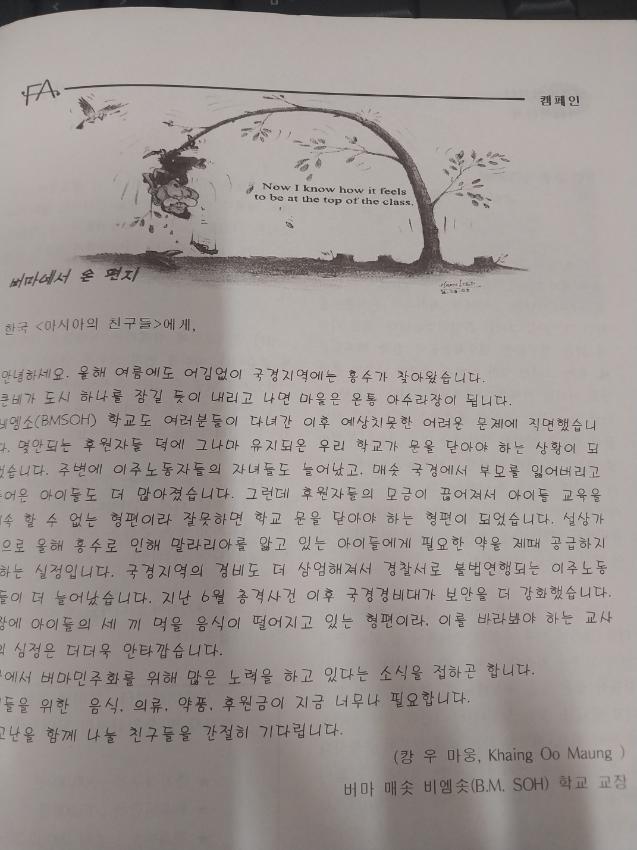 FA
캠페인
Now I know how it feels
to be at the top of the class.
버마에서 온 편지
한국 <아시아의 친구들>에게,
안녕하세요. 올해 여름에도 어김없이 국경지역에는 홍수가 찾아왔습니다.
큰비가 도시 하나를 잠길 듯이 내리고 나면 마을은 온통 아수라장이 됩니다.
비엠소(BMSOH) 학교도 여러분들이 다녀간 이후 예상치못한 어려운 문제에 직면했습니
다. 몇안되는 후원자들 덕에 그나마 유지되온 우리 학교가 문을 닫아야 하는 상황이 되
었습니다. 주변에 이주노동자들의 자녀들도 늘어났고, 매솟 국경에서 부모를 잃어버리고
어온 아이들도 더 많아졌습니다. 그런데 후원자들의 모금이 끊어져서 아이들 교육을
속 할 수 없는 형편이라 잘못하면 학교 문을 닫아야 하는 형편이 되었습니다. 설상가
으로 올해 홍수로 인해 말라리아를 앓고 있는 아이들에게 필요한 약을 제때 공급하지
하는 실정입니다. 국경지역의 경비도 더 삼엄해져서 경찰서로 불법연행되는 이주노동
들이 더 늘어났습니다. 지난 6월 총격사건 이후 국경경비대가 보안을 더 강화했습니다.
황에 아이들의 세 끼 먹을 음식이 떨어지고 있는 형편이라, 이를 바라봐야 하는 교사
의 심정은 더더욱 안타깝습니다.
에서 버마민주화를 위해 많은 노력을 하고 있다는 소식을 접하곤 합니다.
들을 위한 음식, 의류, 약품, 후원금이 지금 너무나 필요합니다.
고난을 함께 나눌 친구들을 간절히 기다립니다.
(캉 우 마웅, Khaing Oo Maung )
버마 매솟 비엠솟(B.M. SOH) 학교 교장